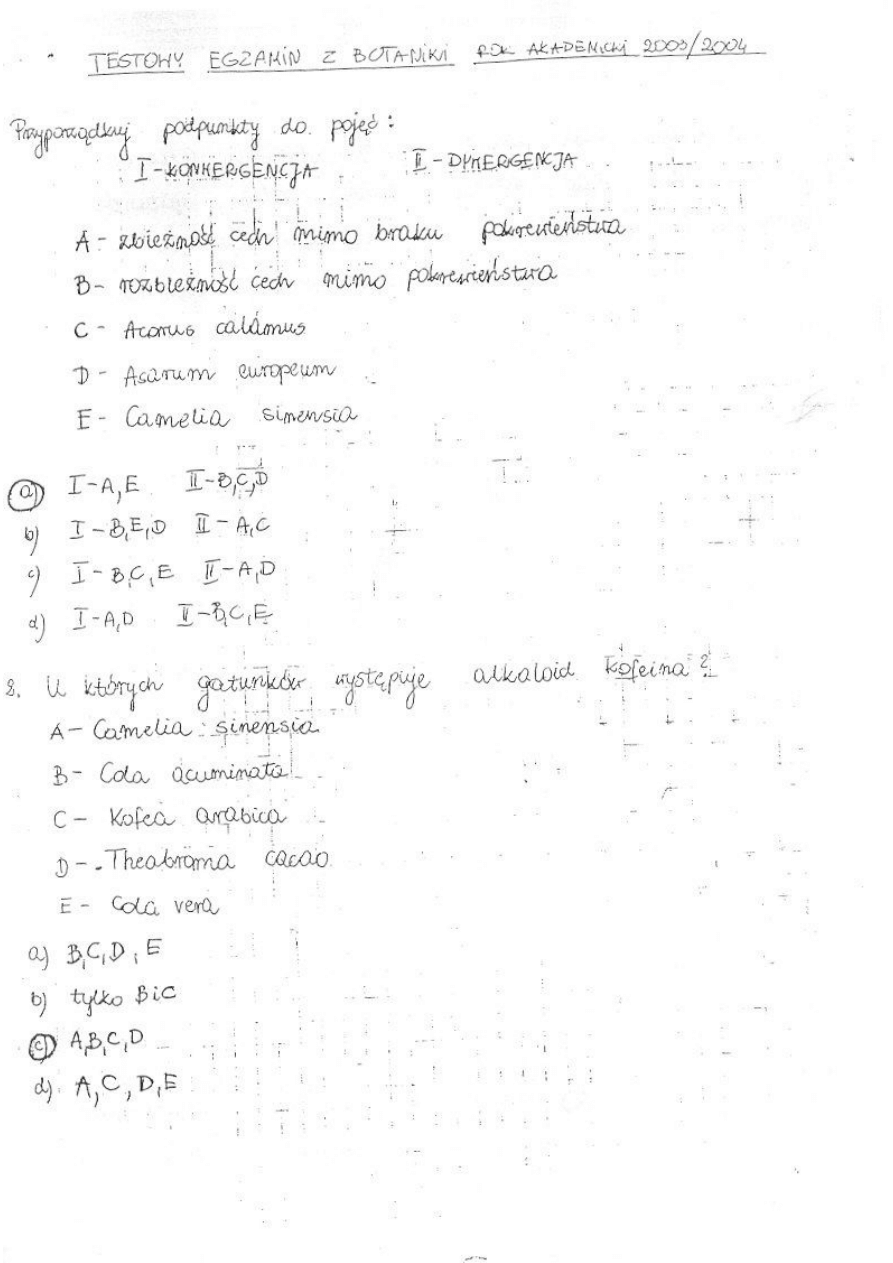 TESTOWY EGZAMIN Z BOTANIKI ROK AKADEMICKI 2003/2004
Przyporządkuj podpunkty do pojęć:
I-KONWERGENCJA II-DYWERGENCJA
A- zbieżność cech mimo braku pokrewieństwa
B- rozbieżność cech mimo pokrewieństwa
C- Acorus calamus
D- Asarum europeum
E- Camelia sinensia
a) I-A,E II-B,C,D
b) I-B,E,D II-A,C
c) I-B,C,E II-A,D
d) I-A,D II-B,C,E
2. U których gatunków występuje alkaloid kofeina?
A- Camelia sinensia
B- Cola acuminata
C- Kofea arabica
D- Theabroma cacao
E- Cola vera
a) B,C,D,E
b) tylko B i C
c) A,B,C,D
d) A,C,D,E